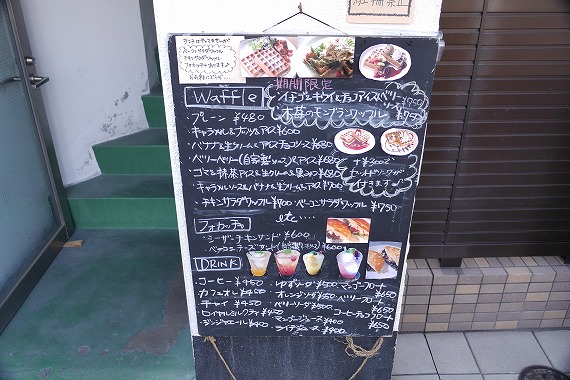 期間限定
Waffle
イチゴ&キウイ&チョコアイス(ベリーソース) ¥750
木苺のモンブランワッフル ¥750
・プレーン ¥480
・キャラメル&ナッツ&アイス ¥600
・バナナ&生クリーム&アイスチョコソース ¥680
・ベリーベリー(自家製ソース)&アイス ¥680
・ゴマ&抹茶アイス&生クリーム&黒みつ ¥680
・キャラメルソース&バナナ&生クリーム&アイス ¥700
+¥300で
セットドリンクが
付きます
・チキンサラダワッフル ¥700 ・ベーコンサラダワッフル ¥750
etc....
フォカッチャ
・シーザーチキンサンド ¥600
・ベーコンチーズサンド(自家製ソース) ¥600
DRINK
・コーヒー ¥450 ・ゆずソーダ ¥500 ・マンゴーフロート ¥650
・カフェオレ ¥450 オレンジソーダ ¥500 ・ベリーフロート ¥650
・チャイ ¥450 ・ベリーソーダ ¥500 コーヒーフロート ¥650
・ロイヤルミルクティ ¥450 ・マンゴージュース ¥400
・ジンジャエール ¥400 ・ライチジュース ¥400